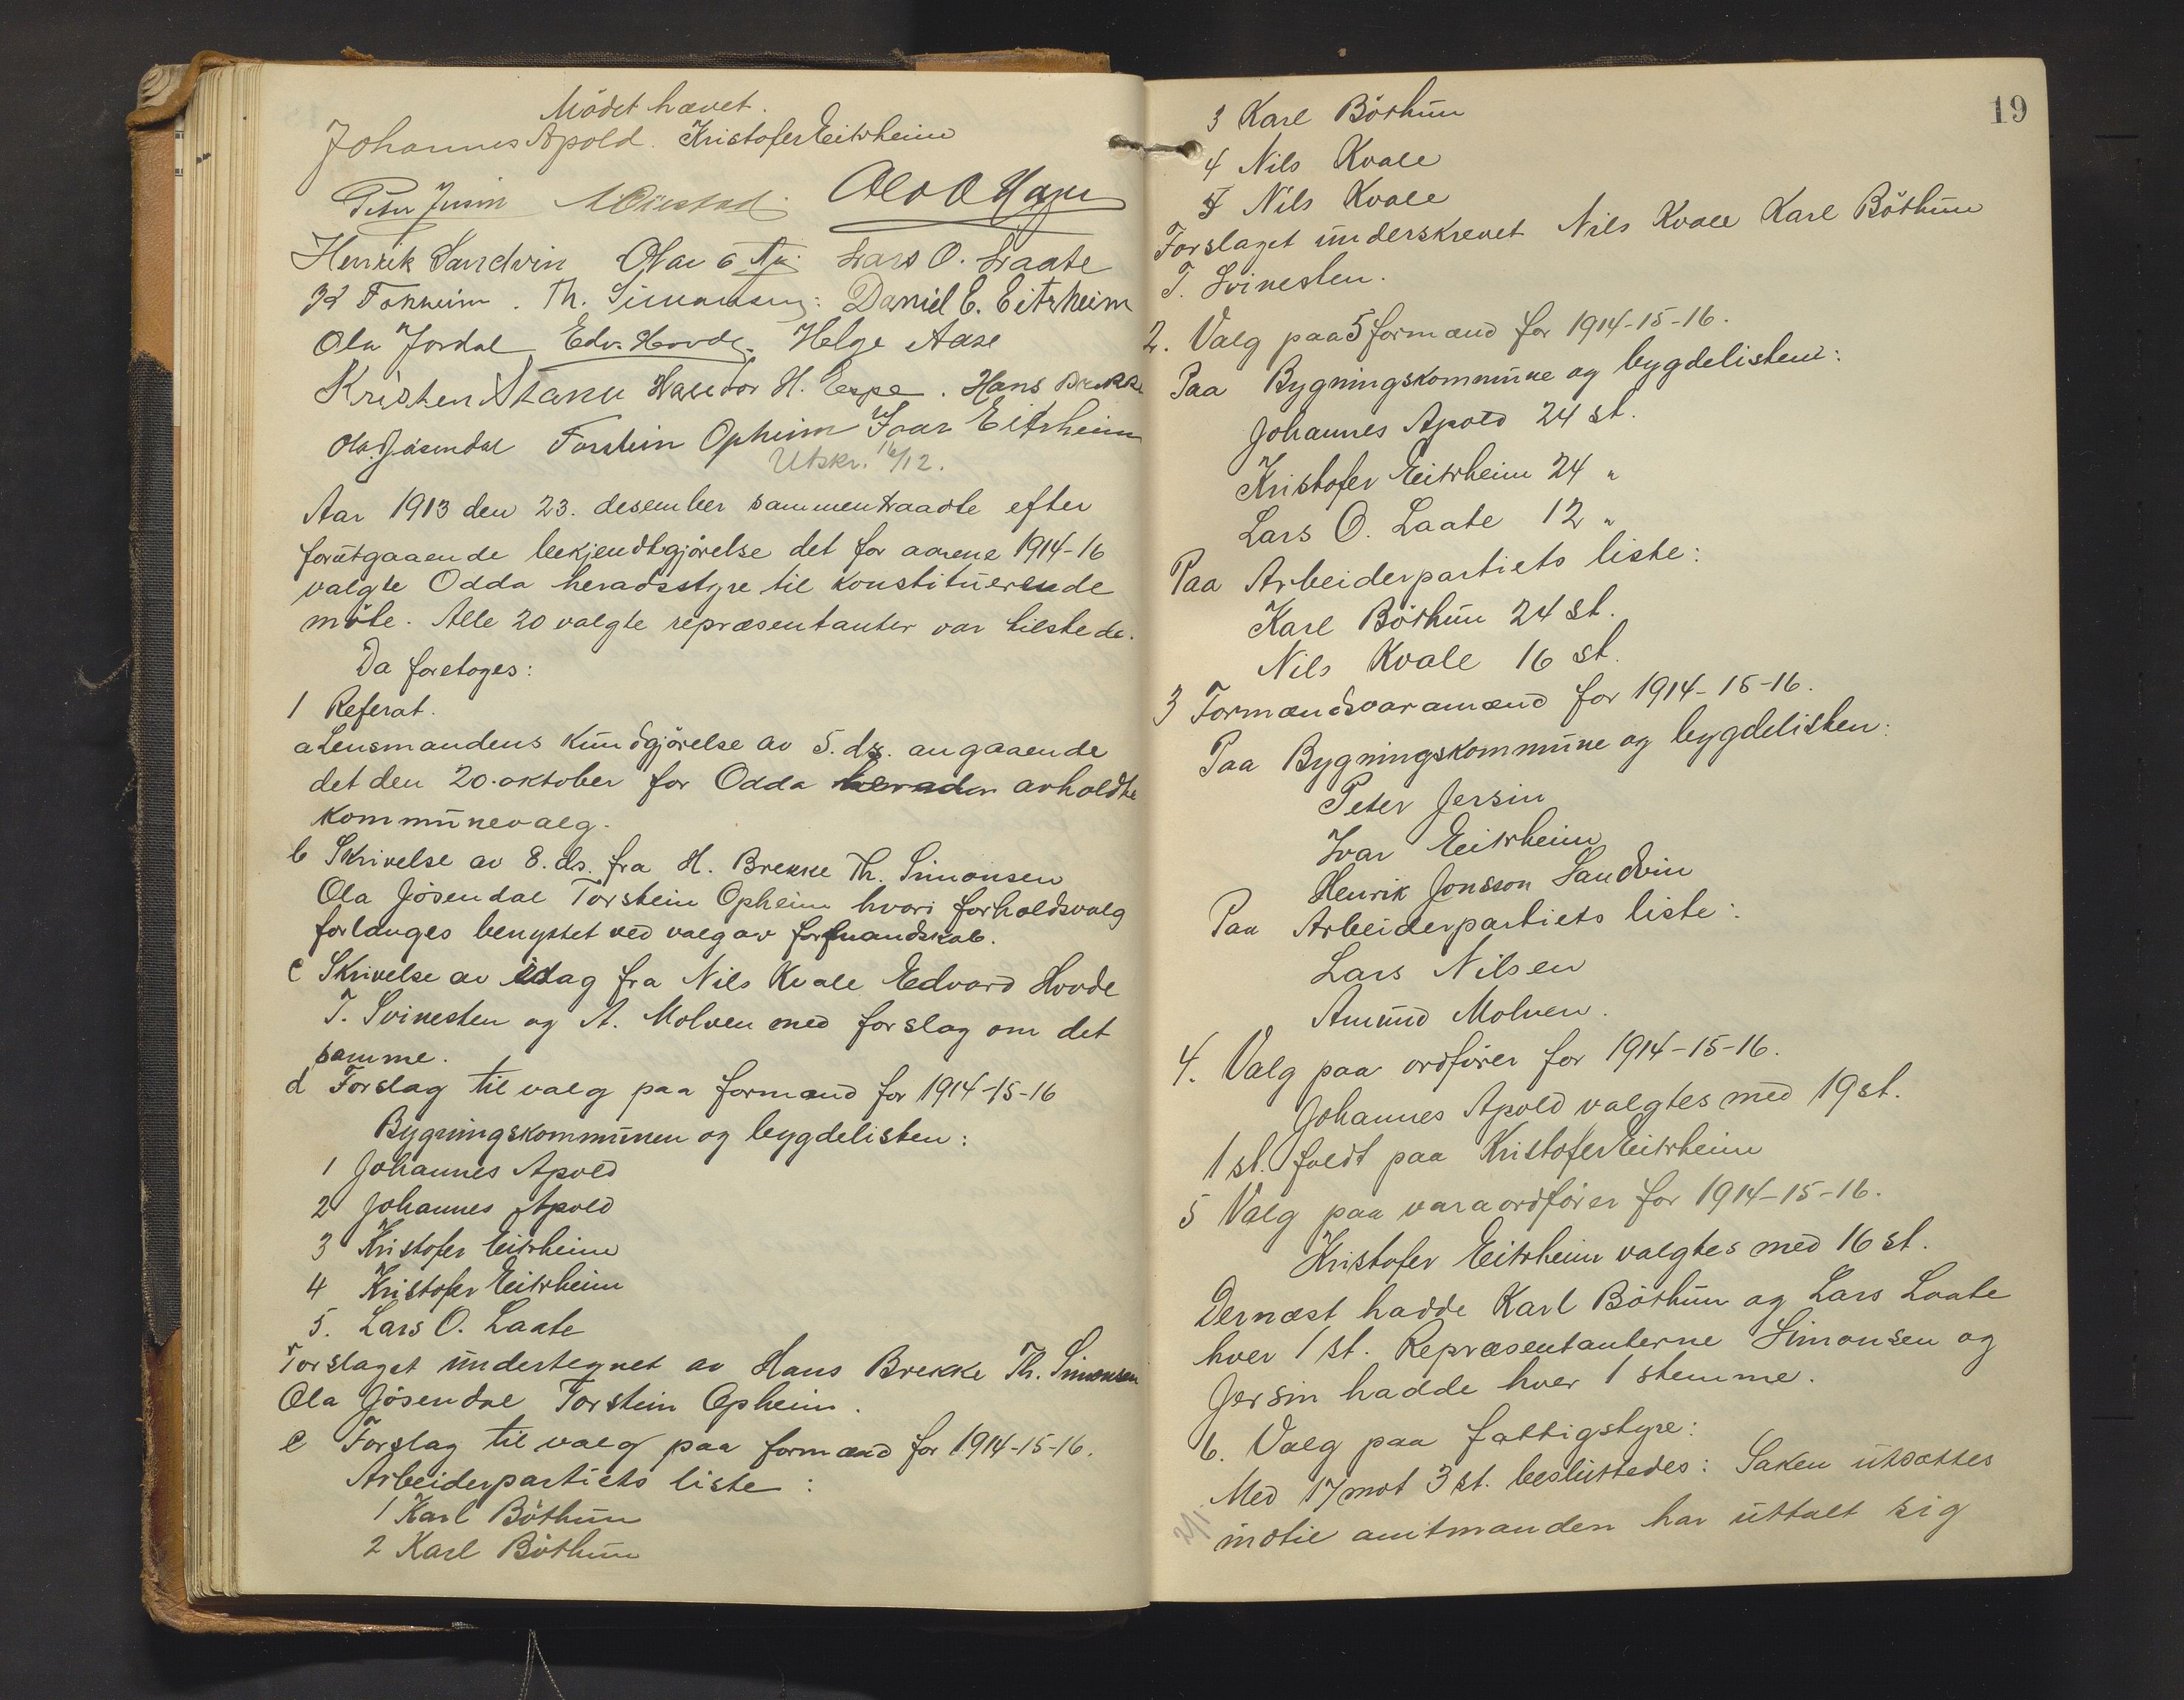 Mödet hævet.
Johannes Apold. Kristofer Eitrheim
Peter Jersin
Henrik Sandvin Olav Lars O. Laate
Tokheim. Th. Simonsen. Daniel E. Eitrheim
Ola Jordal Edv. Hovde. Helge Aase
Kristen Stana Halvdor H. Espe. Hans Brekke
Ola Jösendal Torstein Opheim Ivar Eitrheim
Utskr. 16/12.
Aar 1913 den 23. desember sammentraadte efter
forutgaaende bekjendtgjörelse det for aarene 1914-16
valgte Odda heradsstyre til konstituerende
möte. Alle 20 valgte repræsentanter var tilstede.
Da foretoges:
1 Referat.
a Lensmandens kundgjörelse av 5. ds. angaaende
det den 20. oktober for Odda avholdte
kommunevalg.
b Skrivelse av 8. ds. fra H. Brekke Th. Simonsen
Ola Jösendal Torstein Opheim hvori forholdsvalg
forlanges benyttet ved valg av formandskab.
c Skrivelse av idag fra Nils Kvale Edvard Hovde
T. Svinesten og A. Molven med forslag om det
samme.
d Forslag til valg paa formænd for 1914-15-16
Bygningskommunen og bygdelisten:
1 Johannes Apold
2 Johannes Apold
3 Kristofer Eitrheim
4 Kristofer Eitrheim
5. Lars O. Laate
Forslaget undertegnet av Hans Brekke Th. Simonsen
Ola Jösendal Torstein Opheim.
e Forslag til valg paa formænd for 1914-15-16.
Arbeiderpartiets liste:
1 Karl Böthun
2 Karl Böthun
19
3 Karl Böthun
4 Nils Kvale
5 Nils Kvale
Forslaget underskrevet Nils Kvale Karl Böthun
T. Svinesten.
2. Valg paa 5 formænd for 1914-15-16.
Paa Bygningskommune og bygdelisten:
Johannes Apold 24 st.
Kristofer Eitrheim 24 "
Lars O. Laate 12 "
Paa Arbeiderpartiets liste:
Karl Böthun 24 st.
Nils Kvale 16 st.
3 Formændsvaramænd for 1914-15-16.
Paa Bygningskommune og bygdelisten:
Peter Jersin
Ivar Eitrheim
Henrik Jonsson Sandvin
Paa Arbeiderpartiets liste:
Lars Nilsen
Amund Molven.
4. Valg paa ordförer for 1914-15-16.
Johannes Apold valgtes med 19 st.
1 st. faldt paa Kristofer Eitrheim
5 Valg paa varaordförer for 1914-15-16.
Kristofer Eitrheim valgtes med 16 st.
Dernæst hadde Karl Böthun og Lars Laate
hver 1 st. Repræsentanterne Simonsen og
Jersin hadde hver 1 stemme.
6. Valg paa fattigstyre:
Med 17 mot 3 st. besluttedes: Saken utsættes
2/1 indtil amtmanden har uttalt sig